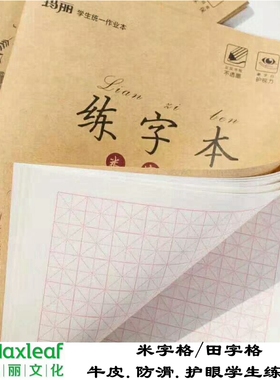 玛丽 学生统一作业本
不透墨
护视力
Lian zi ben
练字本
米
Maxleaf
米字格/田字格
丽文化
牛皮.防滑.护眼学生练